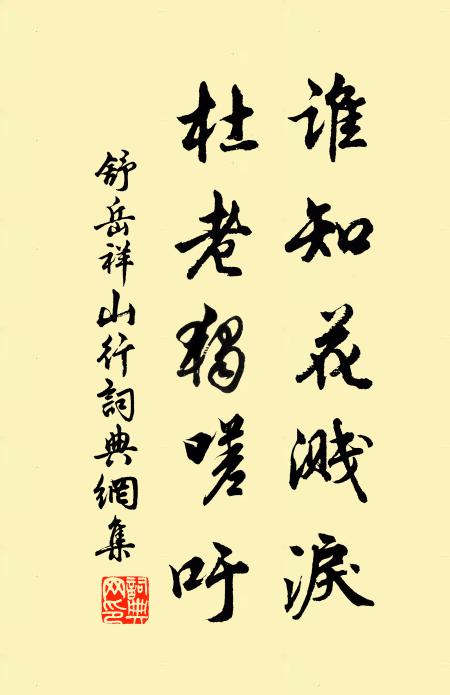 谁知花溅淚
杜老獨嗟吁
舒岳祥山行詞典網集
詞典網印